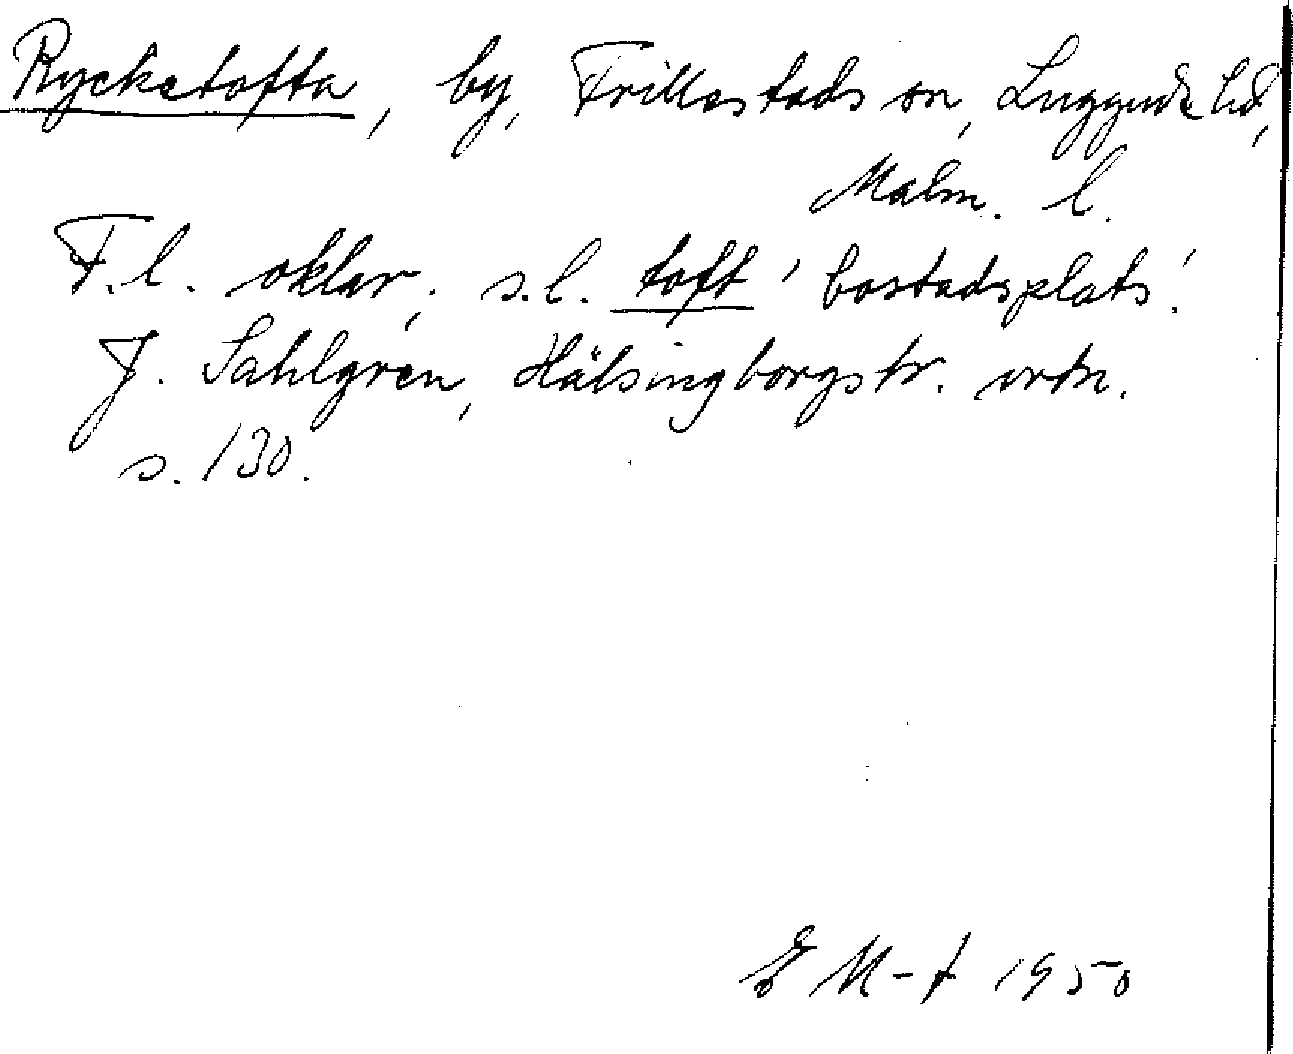 Rycketofta, by, Frillestads sn, Luggude hd,
Malm. l.
F.l. oklar, s.l. toft 'bostadsplats'.
J. Sahlgren, Hälsingborgstr. ortn.
s. 130.
E M-t 1950